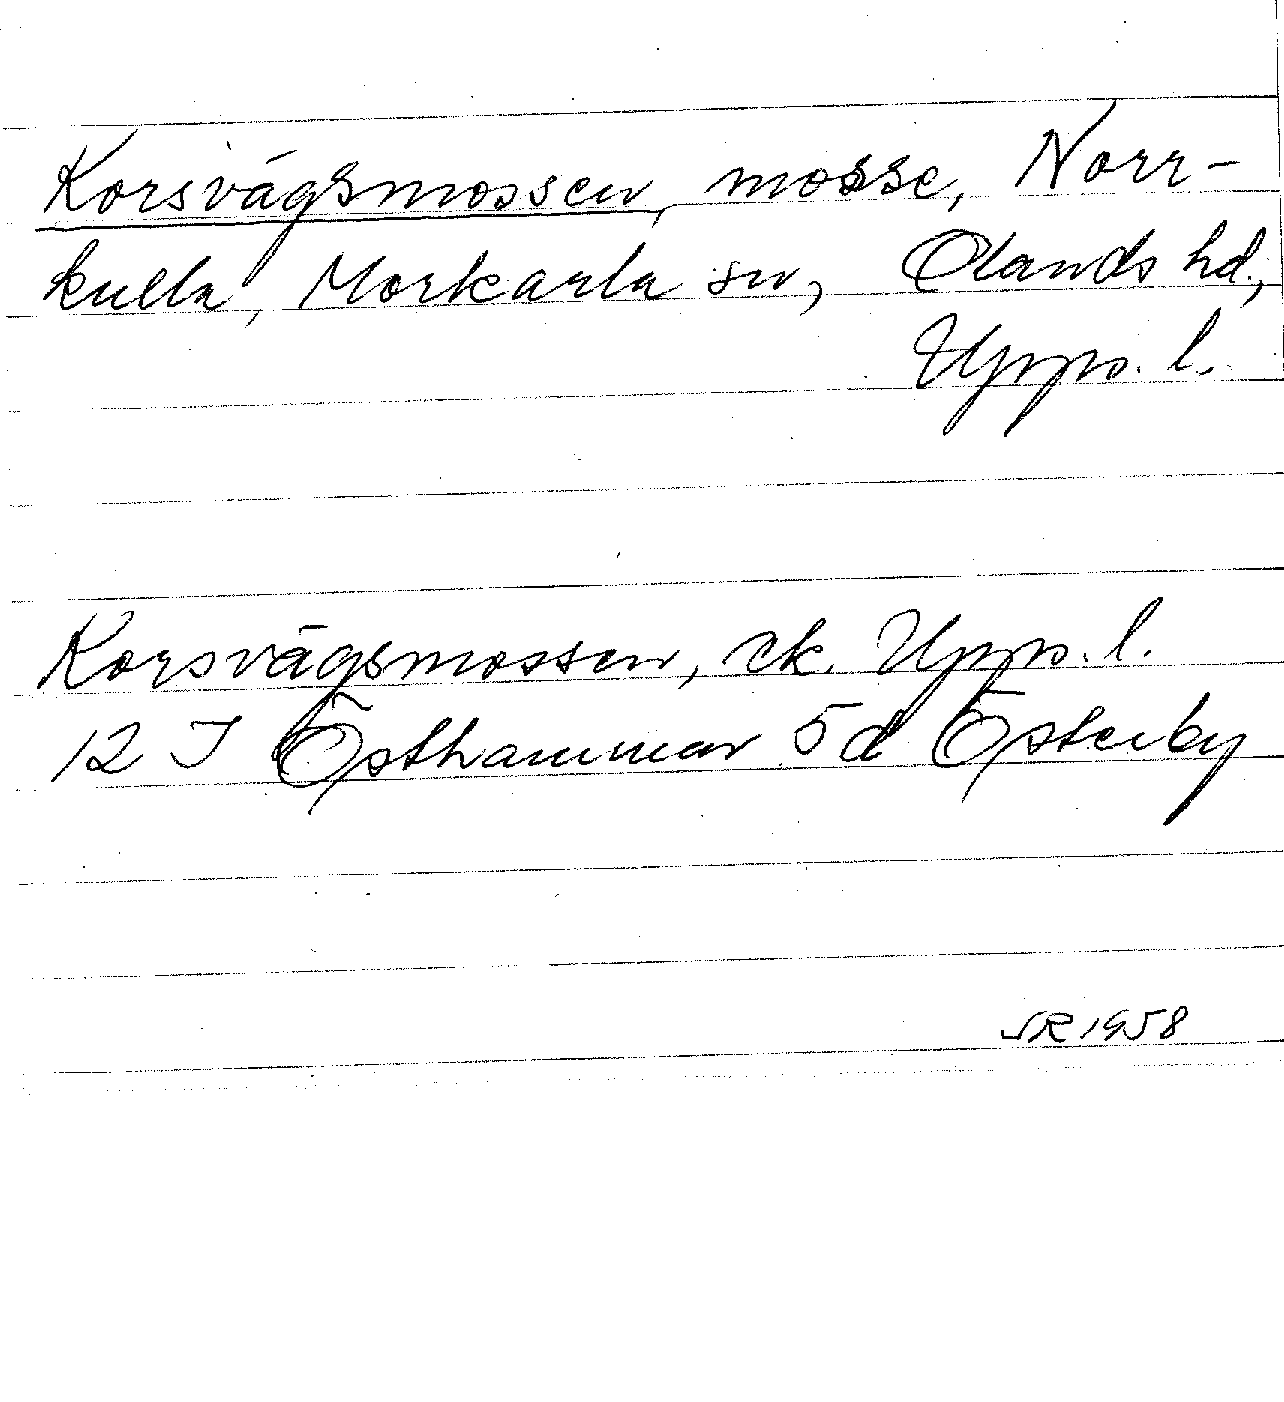 Korsvägsmossen, mosse, Norr-
kulla, Morkarla sn, Olands hd.,
Upps. l.
Korsvägsmossen, ek. Upps. l.
12 I Östhammar 5d Österby
SR 1958